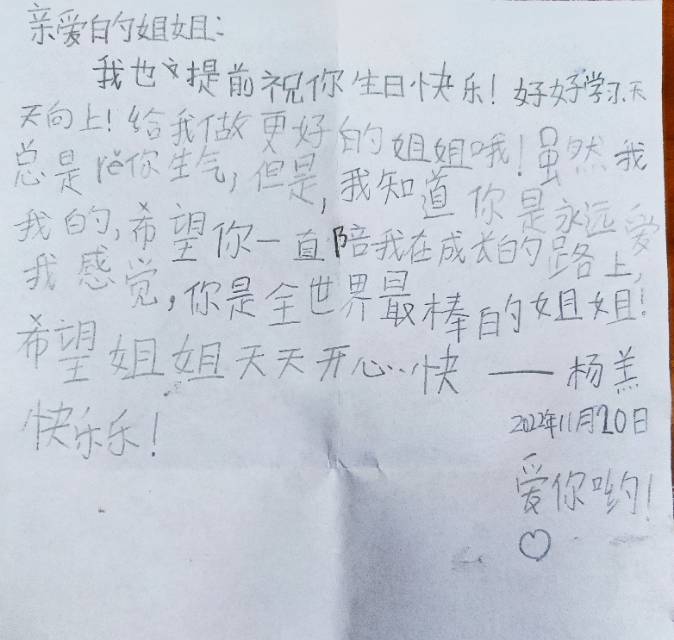 亲爱的姐姐:
我也提前祝你生日快乐!好好学习.天
天向上!给我做更好的姐姐哦!虽然我
总是rě你生气,但是,我知道你是永远爱
我的,希望你一直陪我在成长的路上,
我感觉,你是全世界最棒的姐姐!
希望姐姐天天开心..快
快乐乐!
——杨羔
2022年11月20日
爱你哟!
♡